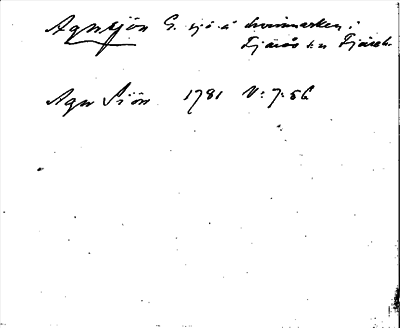 Agnsjön G. sjö å kvinnarken i
Fjärås sn Fjäre h.
Agn Siön 1781 V:7:56